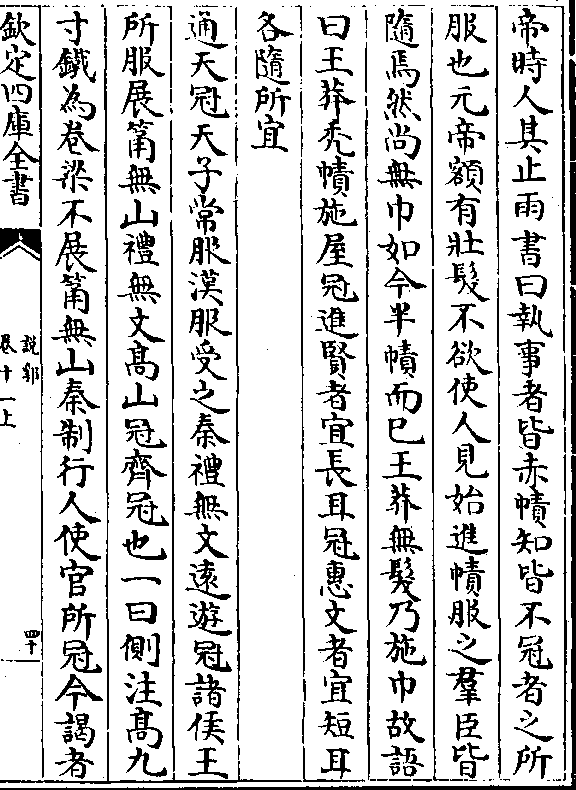 帝時人其止雨書曰執事者皆赤幘知皆不冠者之所
服也元帝額有壯髮不欲使人見始進幘服之羣臣皆
隨焉然尚無巾如今半幘而已王莽無髮乃施巾故語
曰王莽禿幘施屋冠進賢者宜長耳冠惠文者宜短耳
各隨所宜
通天冠天子常服漢服受之秦禮無文遠遊冠諸侯王
所服展筩無山禮無文髙山冠齊冠也一曰側注髙九
寸鐵為卷梁不展筩無山秦制行人使官所冠今謁者
欽定四庫全書
說郛
卷十一上
四十